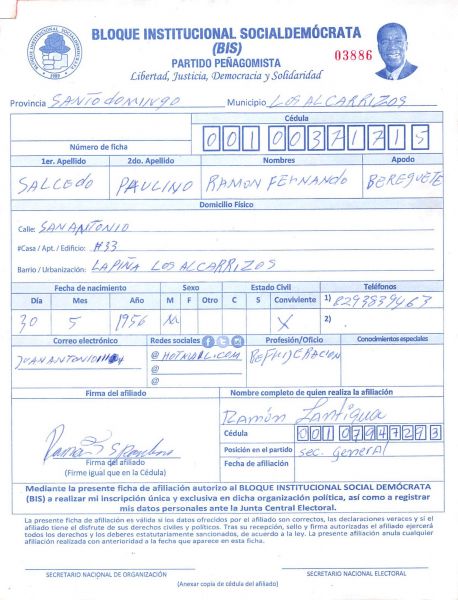 BLOQUE INSTITUCIONAL SOCIALDEMÓCRATA
(BIS)
PARTIDO PEÑAGOMISTA
Libertad, Justicia, Democracia y Solidaridad
03886
Provincia SANTO DOMINGO Municipio LOS ALCARRIZOS
Número de ficha
Cédula
00100371715
1er. Apellido 2do. Apellido Nombres Apodo
SALCEDO PAULINO RAMON FERNANDO BEREQUETE
Domicilio Físico
Calle: SAN ANTONIO
#Casa / Apt. / Edificio: #33
Barrio / Urbanización: LA PIÑA LOS ALCARRIZOS
Fecha de nacimiento Sexo Estado Civil Teléfonos
Día Mes Año M F Otro C S Conviviente 1) 8293839463
30 5 1956 M X 2)
Correo electrónico Redes sociales Profesión/Oficio Conocimientos especiales
JUANANTONIO @ HOTMAIL.COM REFIJERACION
@
@
Firma del afiliado Nombre completo de quien realiza la afiliación
Ramón Lantigua
Cédula 00107947273
Posición en el partido sec. general
Fecha de afiliación
Firma del afiliado
(Firme igual que en la Cédula)
Mediante la presente ficha de afiliación autorizo al BLOQUE INSTITUCIONAL SOCIAL DEMÓCRATA
(BIS) a realizar mi inscripción única y exclusiva en dicha organización política, así como a registrar
mis datos personales ante la Junta Central Electoral.
La presente ficha de afiliación es válida si los datos ofrecidos por el afiliado son correctos, las declaraciones veraces y si el
afiliado tiene el disfrute de sus derechos civiles y políticos. Tras su recepción, sello y firma autorizados el afiliado ejercerá
todos los derechos y los deberes estatutariamente sancionados, de acuerdo a la ley. La presente afiliación anula cualquier
afiliación realizada con anterioridad a la fecha que aparece en esta ficha.
SECRETARIO NACIONAL DE ORGANIZACIÓN SECRETARIO NACIONAL ELECTORAL
(Anexar copia de cédula del afiliado)